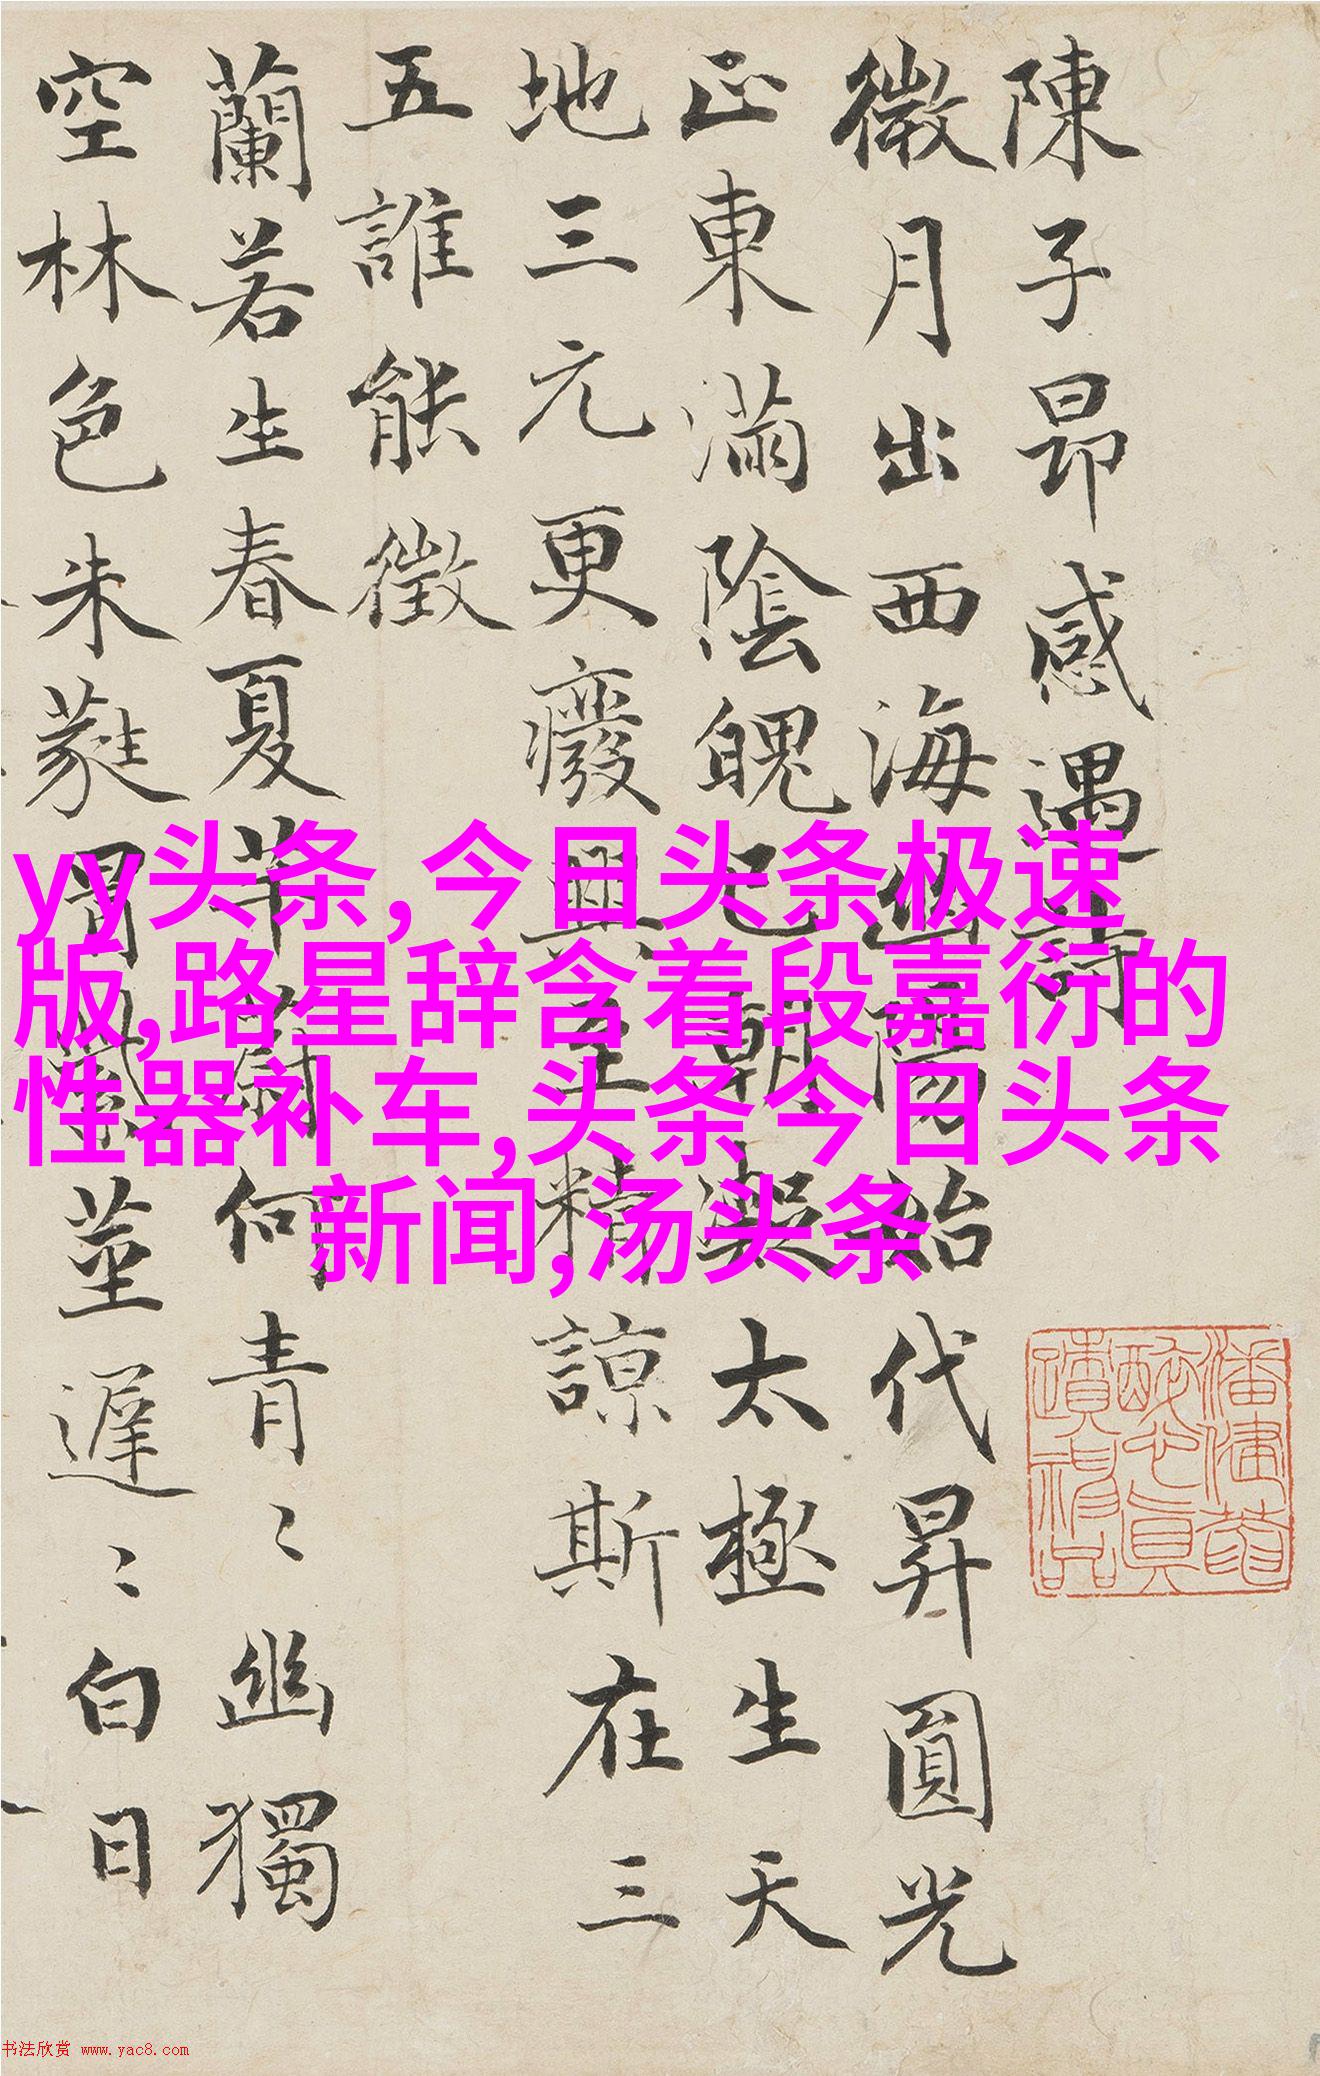 陳子昂感遇詩
微月出西海幽陽始代昇圓光
正東滿陰魄已朝凝太極生天
地三元更癈興至精諒斯在三
五誰能徵
蘭若生春夏芊蔚何青〻幽獨
空林色朱蕤冒紫莖遲〻白日
yy头条,今日头条极速
版,路星辞含着段嘉衍的
性器补车,头条今日头条
新闻,汤头条
书法欣赏 www.yac8.com